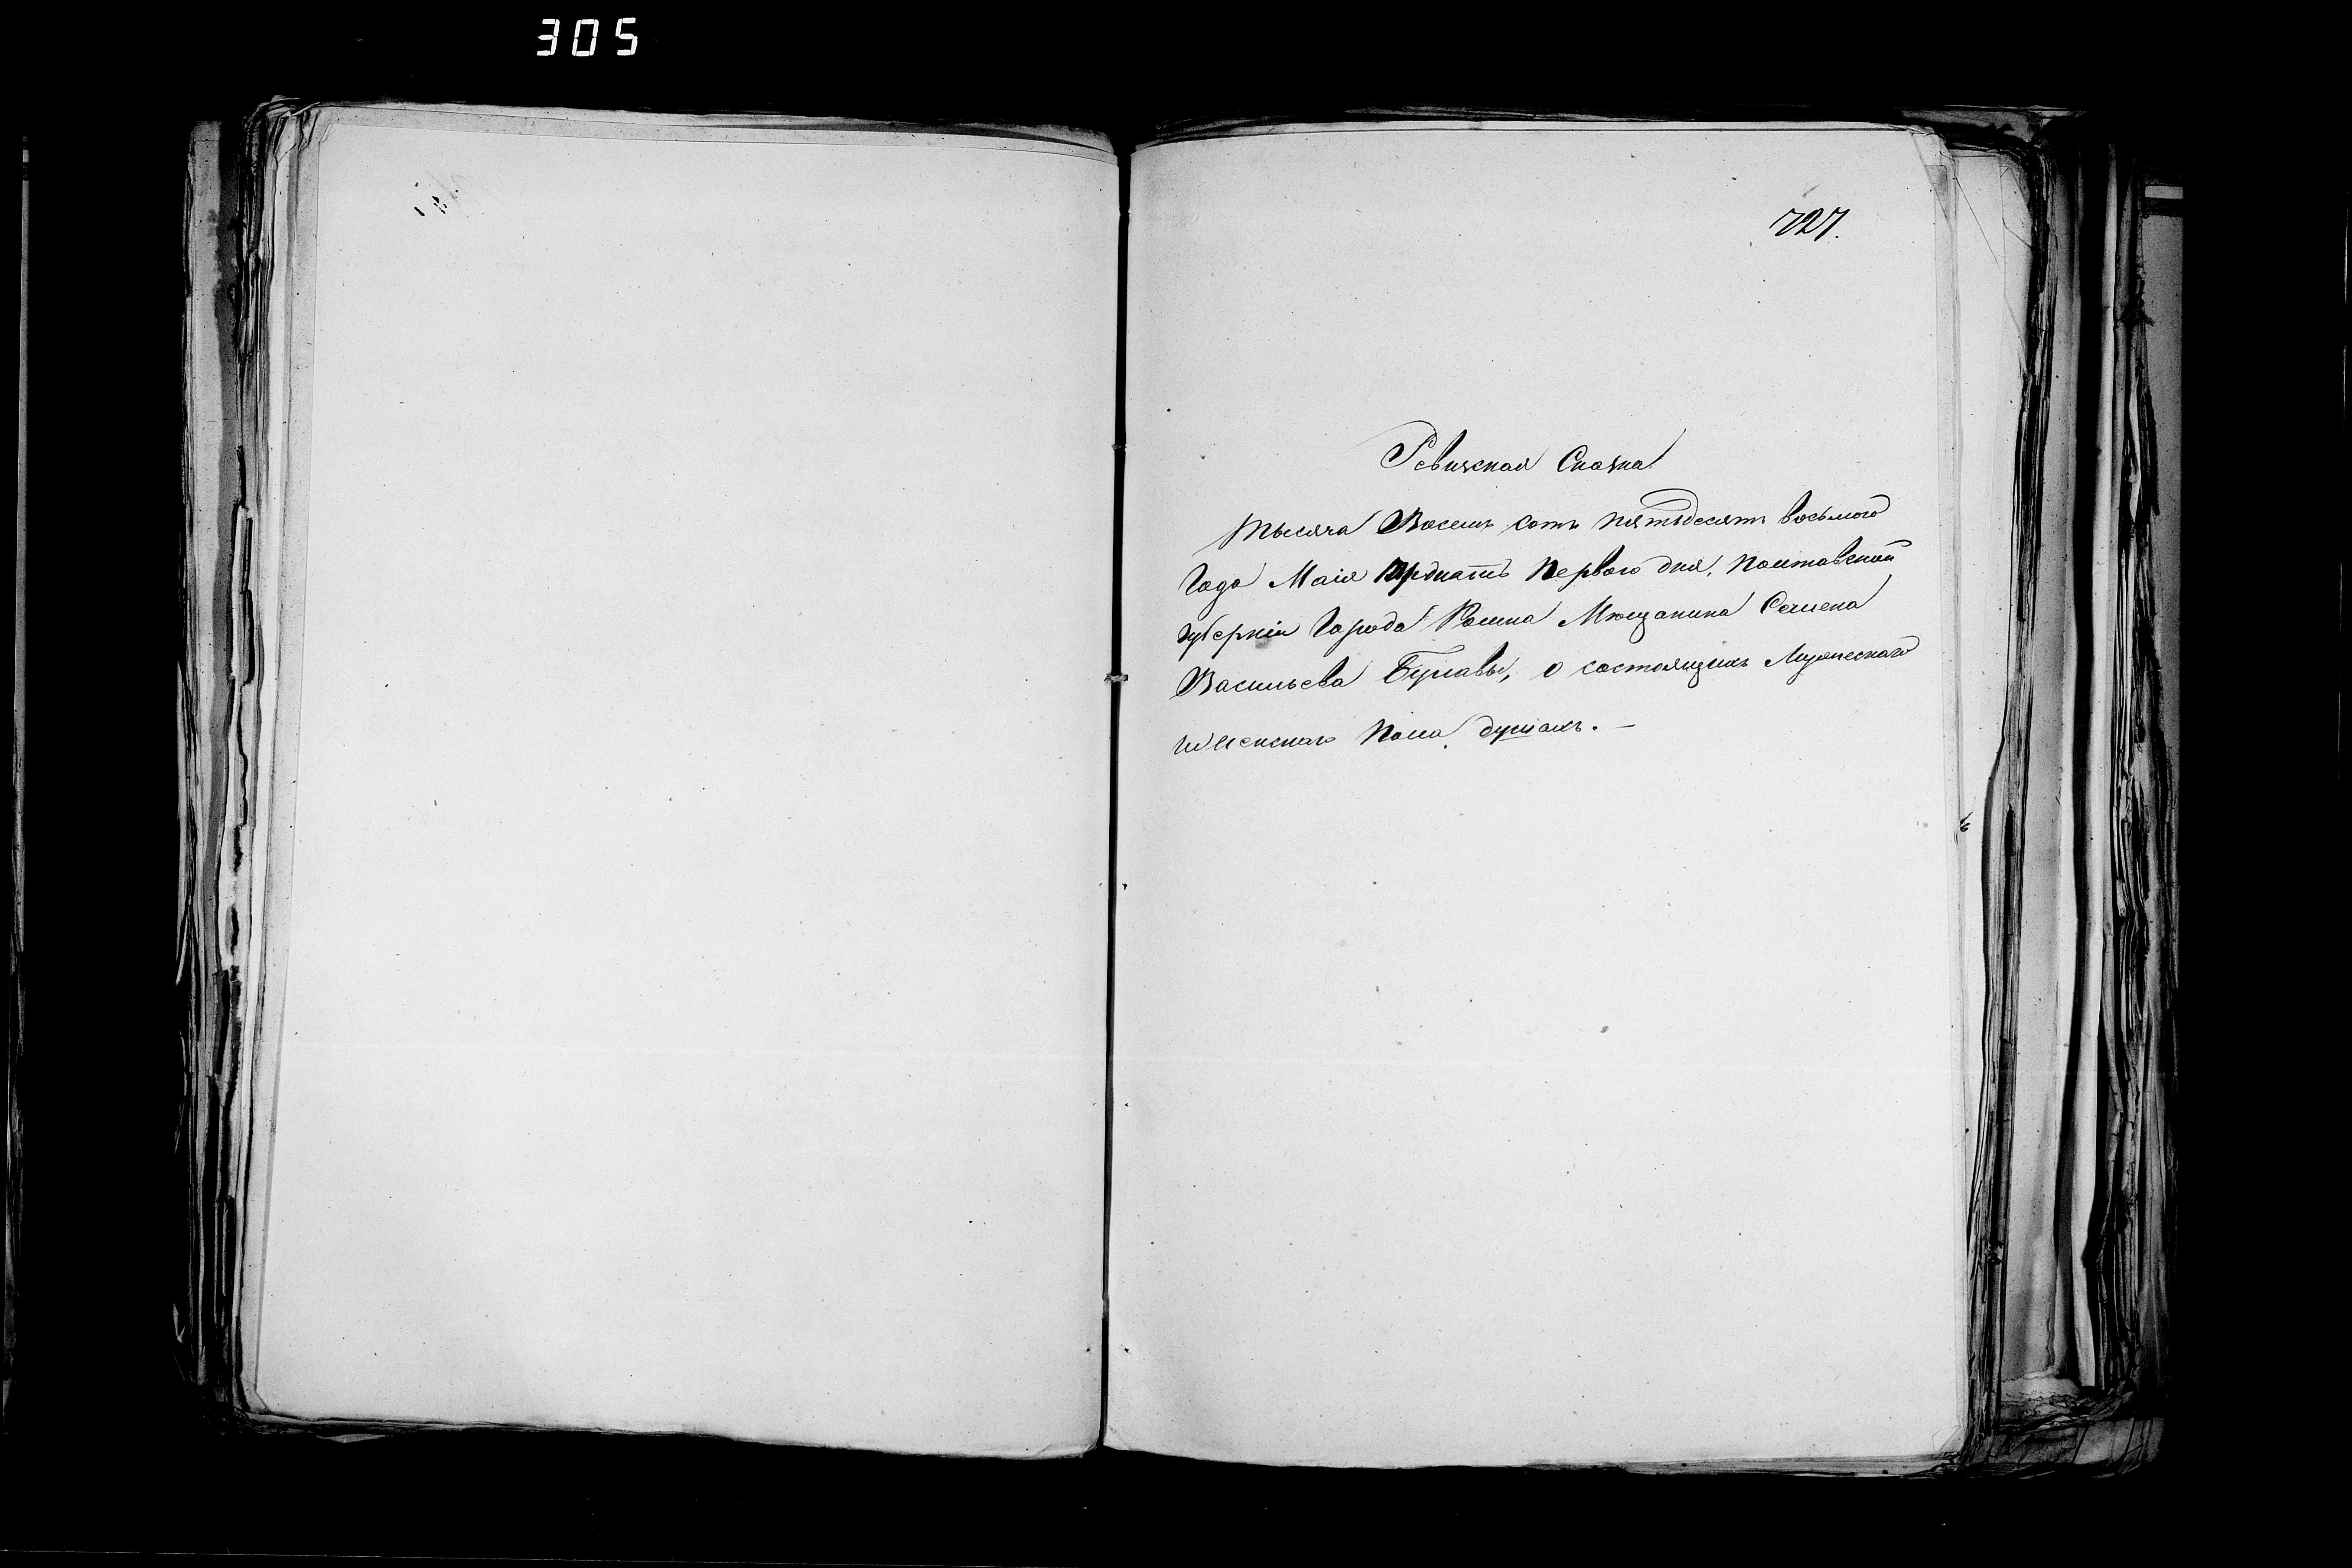 305
727.
Ревизская Сказка
Тысяча Восемь сотъ пятьдесятъ восьмого
Года Маія тридцать Первого дня, Полтавской
Губерніи Города Ромна Мѣщанина Семена
Васильева Булавы, о состоящихъ Мужескаго
и Женскаго Пола душахъ. —